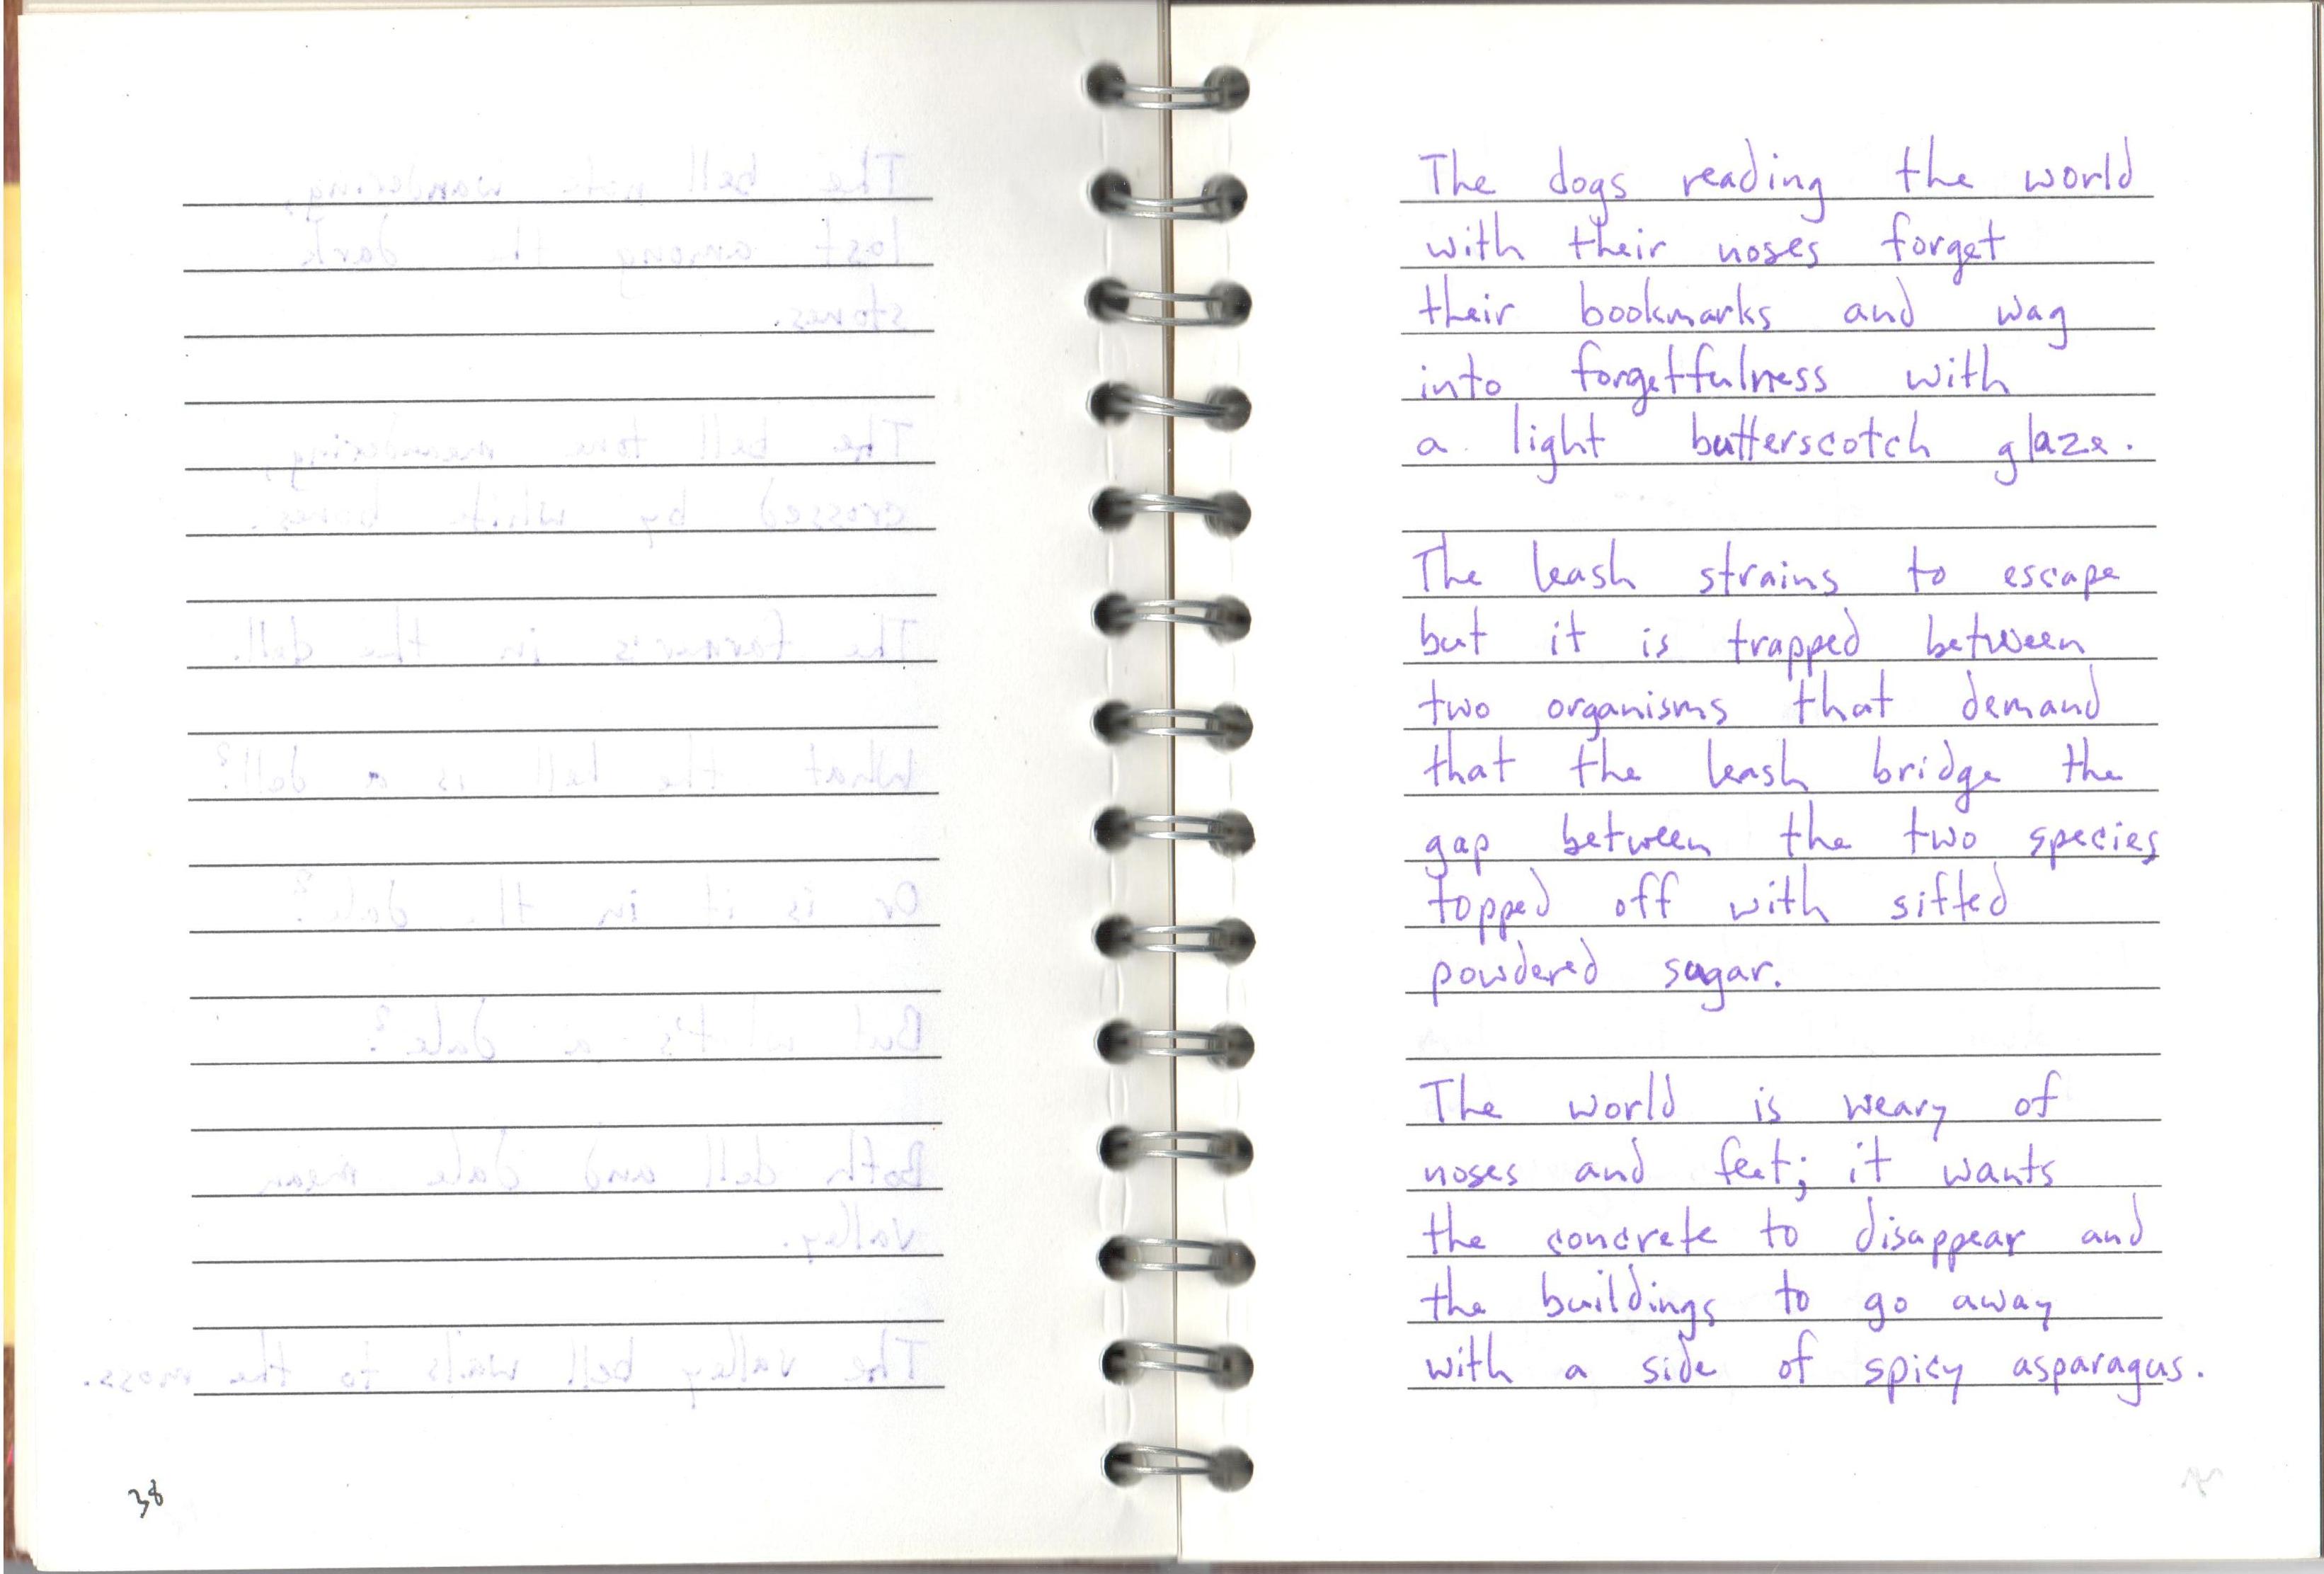 38
The dogs reading the world
with their noses forget
their bookmarks and wag
into forgetfulness with
a light butterscotch glaze.
The leash strains to escape
but it is trapped between
two organisms that demand
that the leash bridge the
gap between the two species
topped off with sifted
powdered sugar.
The world is weary of
noses and feet; it wants
the concrete to disappear and
the buildings to go away
with a side of spicy asparagus.